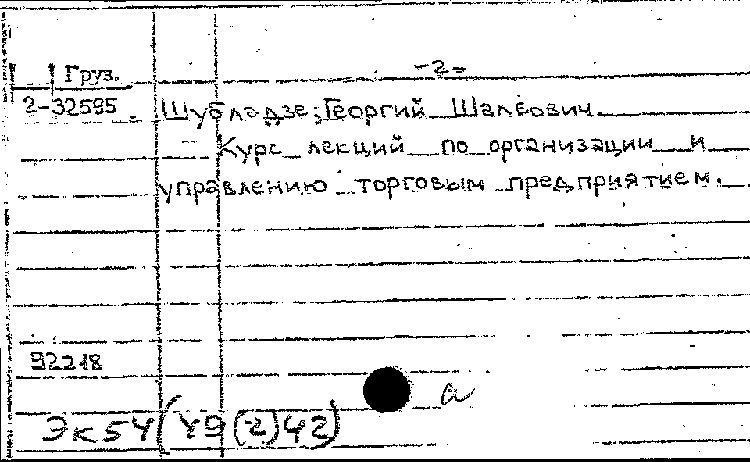 -2-
Груз.
2-32595. Шубладзе, Георгий Шалвович.
Курс лекций по организации и
управлению торговым предприятием.
92218
а
Эк54(У9(2)42)